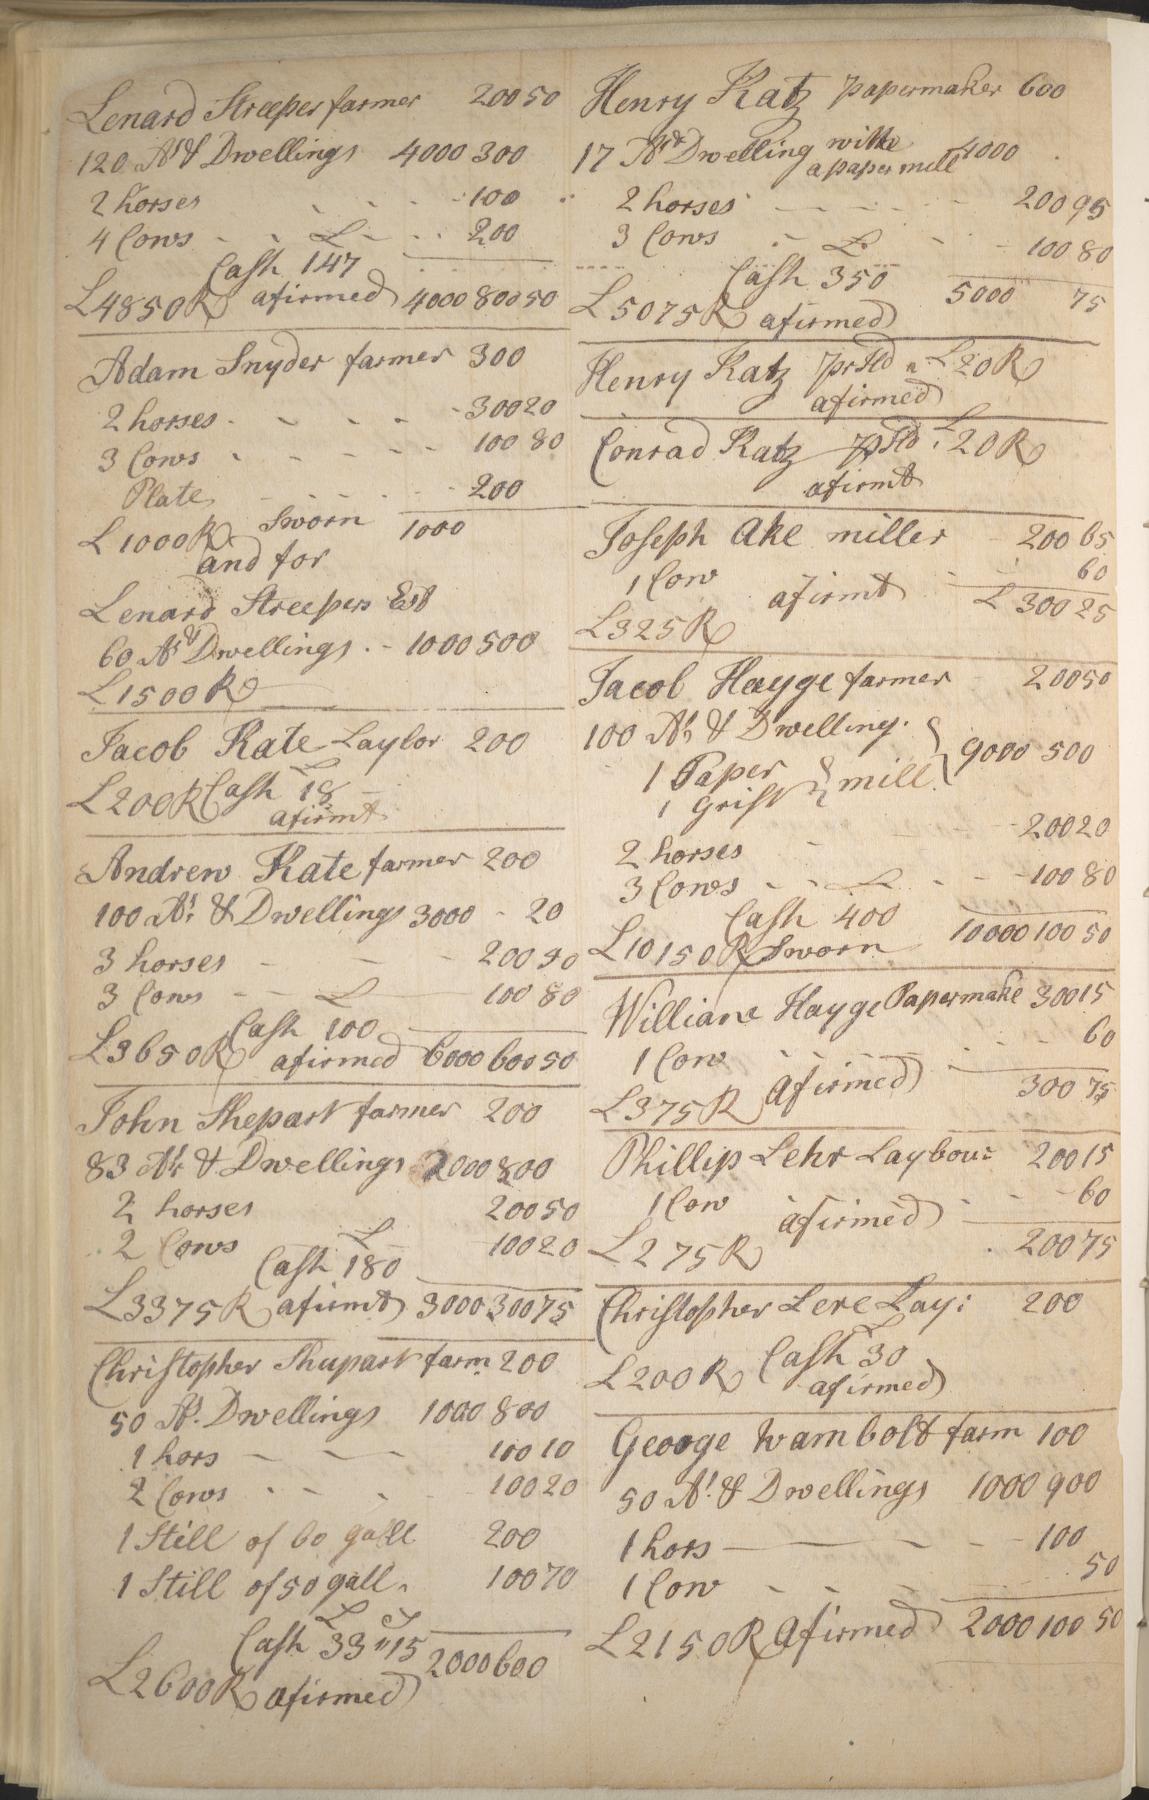 Lenard Streeper farmer 200 50
120 Ars & Dwellings 4000 300
2 horses 100
4 Cows - - £ - - 200
Cash 147
£4850 R afirmed 4000 800 50
Adam Snyder farmer 300
2 horses - - - - 300 20
3 Cows - - - - 100 80
Plate - - - - 200
£1000 R Sworn 1000
and for
Lenard Streepers Est
60 Ars & Dwellings - - 1000 500
£1500 R
Jacob Kate Laylor 200
£
£200 R Cash 18
afirmt
Andrew Kate farmer 200
100 Ars & Dwellings 3000 - 20
3 horses - - - 200 50
3 Cows - - £ 100 80
Cash 100
£3650 R afirmed 6000 600 50
John Shepart farmer 200
83 Ars & Dwellings 2000 800
2 horses 200 50
2 Cows £ 100 20
Cash 180
£3375 R afirmt 3000 300 75
Christopher Shupart farm 200
50 As. Dwellings 1000 800
1 hors - - - 100 10
2 Cows - - - 100 20
1 Still of 60 gall 200
1 Still of 50 gall. 100 70
£ S
Cash 33 " 15
2000 600
£2600 R afirmed
Henry Katz papermaker 600
17 Ars Dwelling with a paper mill 4000
2 horses - - - 200 95
3 Cows - £ - - 100 80
Cash 350
£5075 R afirmed 5000 75
Henry Katz pr Hd " £20 R
afirmed
Conrad Katz pr Hd . £20 R
afirmt
Joseph Ake miller - 200 65
1 Cow - - 60
afirmt £ 300 25
£325 R
Jacob Hayge farmer - 200 50
100 Ars & Dwelling.
1 Paper
1 Grist } mill } 9000 500
2 horses - - - 200 20
3 Cows - - £ - - 100 80
Cash 400
£10150 R Sworn 10000 100 50
William Hayge Papermake 300 15
1 Cow - - - - 60
£375 R Afirmed 300 75
Phillip Lehr Laybour 200 15
1 Cow afirmed - - - 60
£275 R . 200 75
Christopher Lere Lay: 200
£
£200 R Cash 30
afirmed
George Wambolt farm 100
50 As. & Dwellings 1000 900
1 hors - - - 100
1 Cow - - - 50
£2150 R Afirmed 2000 100 50